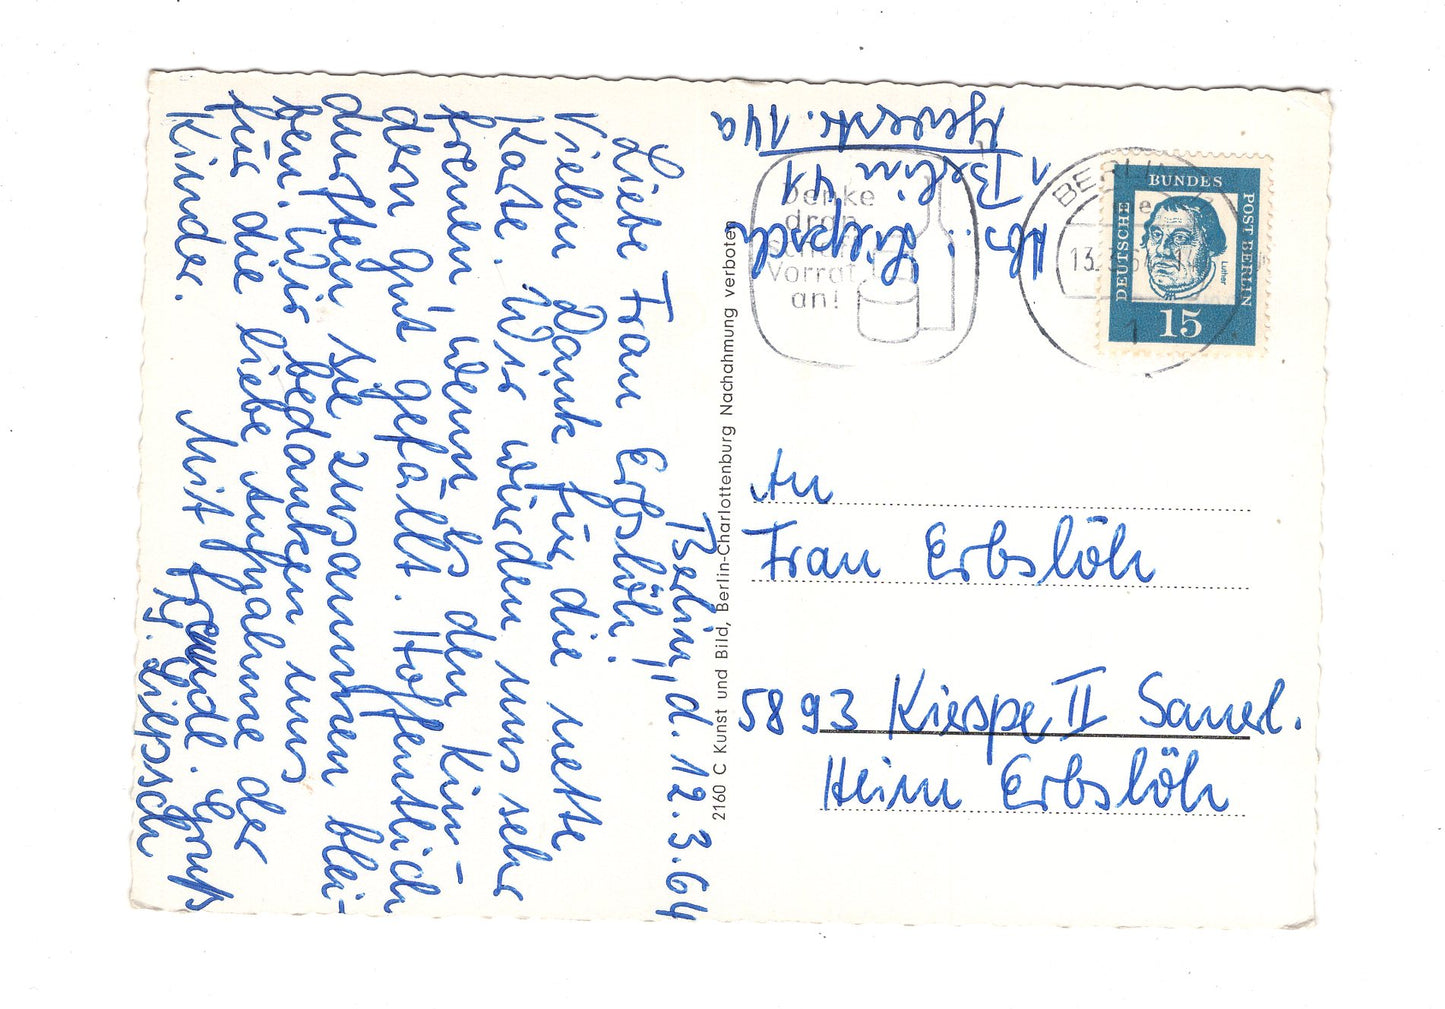 Berlin, d. 12.3.64
Liebe Frau Erbslöh!
Vielen Dank für die nette
Karte. Wir würden uns sehr
freuen, wenn es den Kin-
dern gut gefällt. Hoffentlich
durften sie zusammen blei-
ben. Wir bedanken uns
für die liebe Aufnahme der
Kinder.
Mit freundl. Gruß
Liepsch
2160 C Kunst und Bild, Berlin-Charlottenburg Nachahmung verboten
Abs.: Liepsch
1 Berlin 41
14a
Denke
dran
schaff
Vorrat
an!
BERLIN
13.3.64
1
DEUTSCHE
BUNDES
POST BERLIN
Luther
15
An
Frau Erbslöh
5893 Kierspe II Sauerl.
Heim Erbslöh